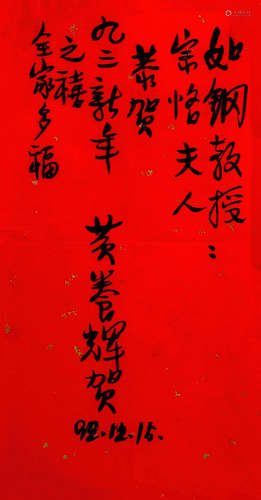 如鋼教授：
宗恪夫人
恭賀
九三新年
之禧
全家多福
黄養輝賀
92.12.15.